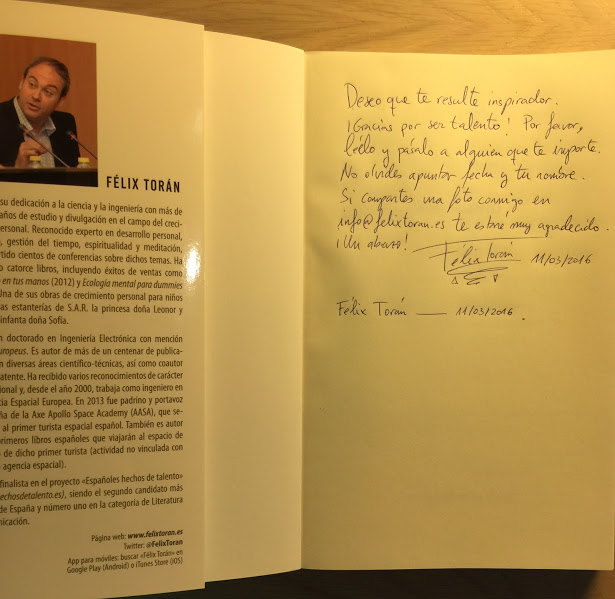 FÉLIX TORÁN
su dedicación a la ciencia y la ingeniería con más de
años de estudio y divulgación en el campo del creci-
personal. Reconocido experto en desarrollo personal,
, gestión del tiempo, espiritualidad y meditación,
rtido cientos de conferencias sobre dichos temas. Ha
o catorce libros, incluyendo éxitos de ventas como
en tus manos (2012) y Ecología mental para dummies
Una de sus obras de crecimiento personal para niños
as estanterías de S.A.R. la princesa doña Leonor y
infanta doña Sofía.
n doctorado en Ingeniería Electrónica con mención
uropeus. Es autor de más de un centenar de publica-
n diversas áreas científico-técnicas, así como coautor
atente. Ha recibido varios reconocimientos de carácter
ional y, desde el año 2000, trabaja como ingeniero en
cia Espacial Europea. En 2013 fue padrino y portavoz
ña de la Axe Apollo Space Academy (AASA), que se-
al primer turista espacial español. También es autor
primeros libros españoles que viajarán al espacio de
de dicho primer turista (actividad no vinculada con
agencia espacial).
finalista en el proyecto «Españoles hechos de talento»
hechosdetalento.es), siendo el segundo candidato más
de España y número uno en la categoría de Literatura
nicación.
Página web: www.felixtoran.es
Twitter: @FelixToran
App para móviles: buscar «Félix Torán» en
Google Play (Android) o iTunes Store (iOS)
Deseo que te resulte inspirador.
¡Gracias por ser talento! Por favor,
léelo y pásalo a alguien que te importe.
No olvides apuntar fecha y tu nombre.
Si compartes una foto conmigo en
info@felixtoran.es te estaré muy agradecido.
¡Un abrazo! Félix Torán 11/03/2016
Félix Torán — 11/03/2016.